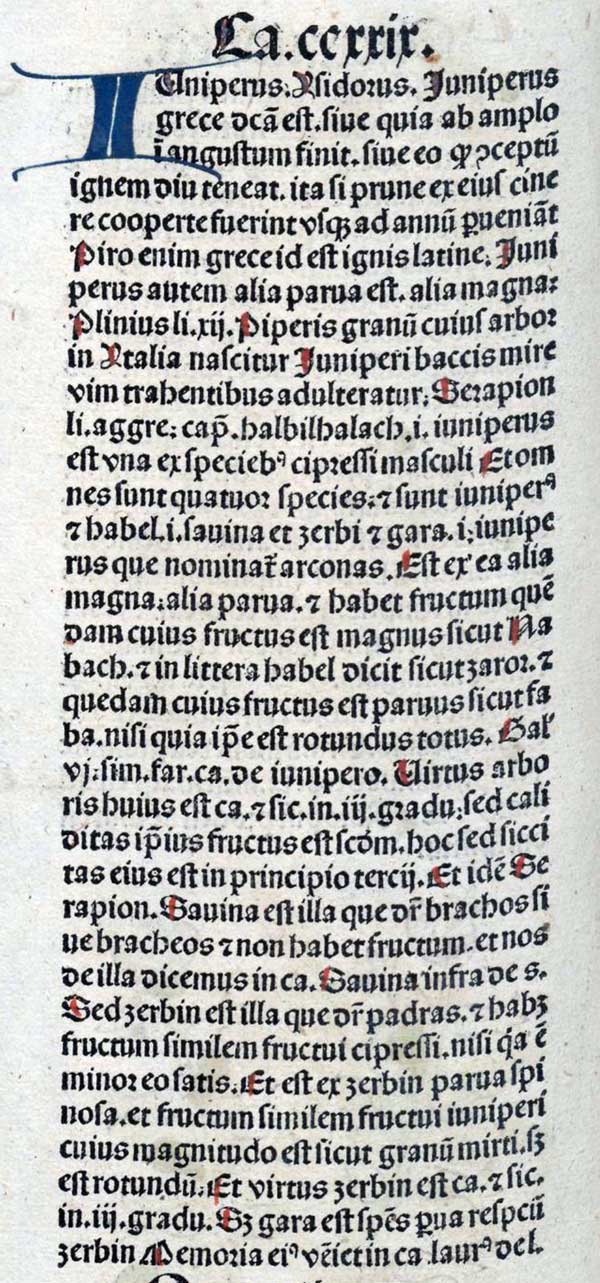 Ca.ccxxix.
IUniperus. Ysidorus. Juniperus
grece dcā est. siue quia ab amplo
ī angustum finit. siue eo ꝙ ꝯceptū
ignem diu teneat. ita si prune ex eius cine
re cooperte fuerint vsqꝫ ad annū ꝑueniāt
Piro enim grece id est ignis latine. Juni
perus autem alia parua est. alia magna:
Plinius li. xij. Piperis granū cuius arbor
in Ytalia nascitur Juniperi baccis mire
vim trahentibus adulteratur. Serapion
li. aggre: cap̄. halbilhalach. i. iuniperus
est vna ex speciebꝰ cipressi masculi Et om
nes sunt quatuor species. ⁊ sunt iuniperꝰ
⁊ habel. i. sauina et zerbi ⁊ gara. i. iunipe
rus que nominat̄ arconas. Est ex ea alia
magna. alia parua. ⁊ habet fructum quē
dam cuius fructus est magnus sicut Na
bach. ⁊ in littera habel dicit sicut zaror. ⁊
quedam cuius fructus est paruus sicut fa
ba. nisi quia ip̄e est rotundus totus. Gal'
vj. sim. far. ca. de iunipero. Uirtus arbo
ris huius est ca. ⁊ sic. in. iij. gradu. sed cali
ditas ip̄ius fructus est scdm̄. hoc sed sicci
tas eius est in principio tercij. Et idē Se
rapion. Sauina est illa que dr̄ brachos si
ue bracheos ⁊ non habet fructum. et nos
de illa dicemus in ca. Sauina infra de s.
Sed zerbin est illa que dr̄ padras. ⁊ habꝫ
fructum similem fructui cipressi. nisi q̇a ē
minor eo satis. Et est ex zerbin parua spi
nosa. et fructum similem fructui iuniperi
cuius magnitudo est sicut granū mirti. sꝫ
est rotundū. Et virtus zerbin est ca. ⁊ sic.
in. iij. gradu. Sꝫ gara est spēs ꝑua respcū
zerbin Memoria eiꝰ vēiet in ca. laurꝰ del.